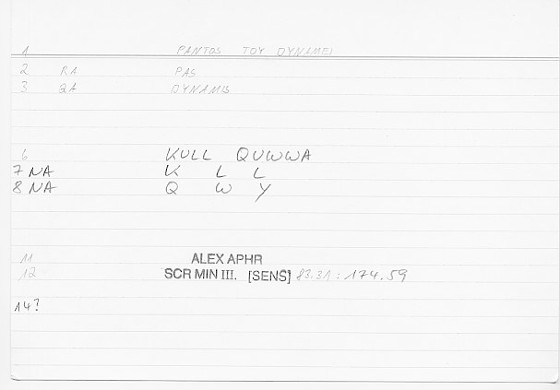 1 PANTOS TOY DYNAMEI
2 RA PAS
3 QA DYNAMIS
6 KULL QUWWA
7 NA K L L
8 NA Q W Y
11 ALEX APHR
12 SCR MIN III. [SENS] 83.31 : 174.59
14?